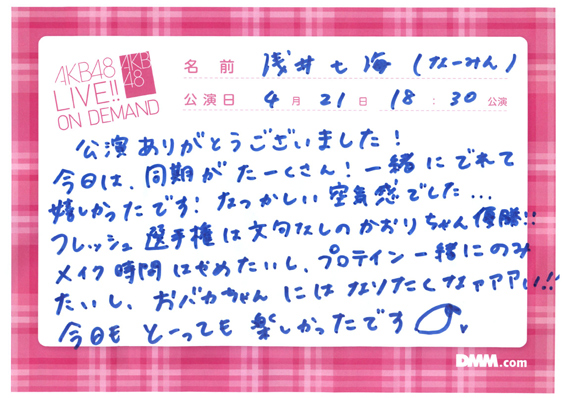 AKB48
LIVE!!
ON DEMAND
AKB
48
名前 浅井七海(なーみん)
公演日 4月21日 18:30公演
公演ありがとうございました!
今日は、同期がたーくさん!一緒にでれて
嬉しかったです!なつかしい空気感でした...
フレッシュ選手権は文句なしのかおりちゃん優勝!!
メイク時間はやめたいし、プロテイン一緒にのみ
たいし、おバカちゃんにはなりたくなァアアい!!
今日もとーっても楽しかったです
DMM.com